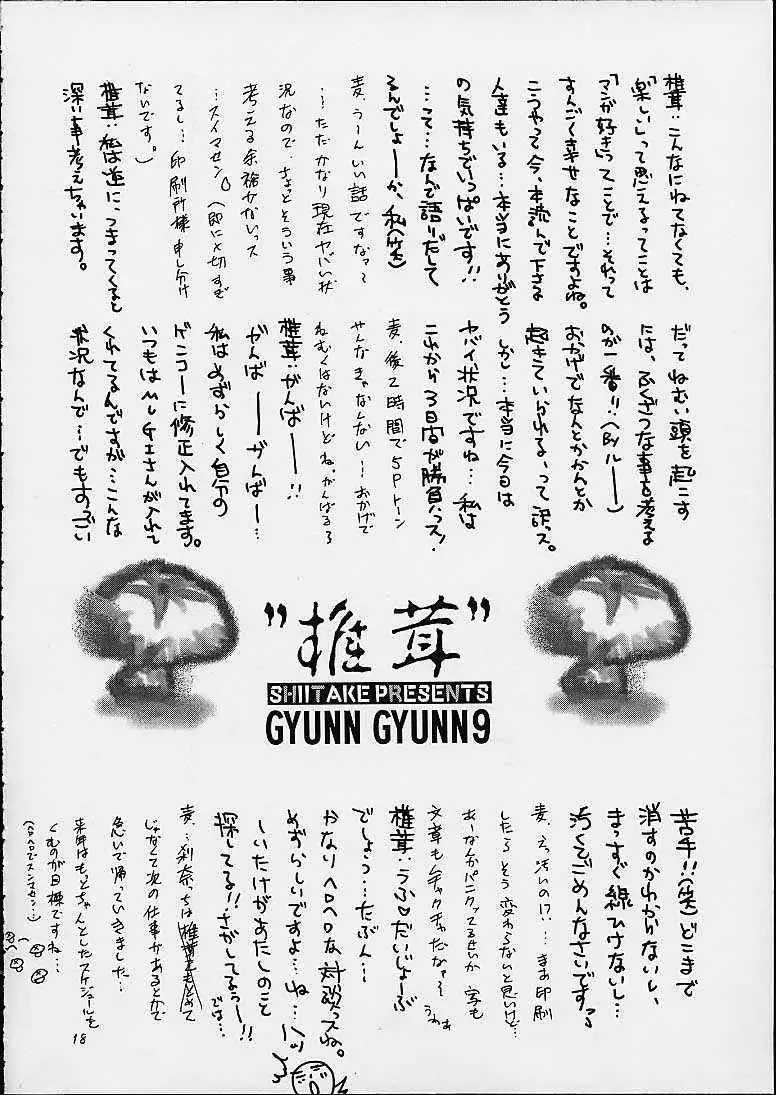 椎茸：こんなにねてなくても、
「楽しい」って思えるってことは
「マンガ好き」ってことで…それって
すんごく幸せなことですよね。
こうやって今、本読んで下さる
人達もいる…本当にありがとう
の気持ちでいっぱいです!!
…って…なんで語りだして
るんでしょーか、私(笑)
麦：うーんいい話ですなァ〜
…ただかなり現在ヤバい状
況なので、ちょっとそういう事
考える余裕がないっス
…スイマセン♡(即に〆切すぎ
てるし…印刷所様申し分け
ないです。)
椎茸：私は逆に、つまってくると
深い事考えちゃいます。
だってねむい頭を起こす
には、ふくざつな事を考える
のが一番!!(ビール——)
おかげでなんとかかんとか
起きていられる、って訳っス。
しかし…本当に今日は
ヤバイ状況ですね…私は
これから3日間が勝負っス!
麦：後2時間で5Pトーン
やんなきゃなんない…おかげで
ねむくはないけどね。がんばるぅ
椎茸：がんばーー!!
がんばーーがんばー…
私はめずらしく自分の
ゲンコーに修正入れてます。
いつもはMUGIさんが入れて
くれてるんですが…こんな
状況なんで…でもすっごい
"椎茸"
SHIITAKE PRESENTS
GYUNN GYUNN 9
苦手!!(笑)どこまで
消すのかわからないし、
まっすぐ線ひけないし…
汚くてごめんなさいですぅ
麦：えっ汚いの!?…まあ印刷
したらそう変わらないと思いけど…
あーなんかパニクッてるせいか字も
文章もメチャクチャだなァ〜
うわぁ
椎茸：うふ♡だいじょーぶ
でしょうっ…たぶん…
かなりヘロヘロな対談っスね。
めずらしいですよ…ね…ハッ
しいたけがあたしのこと
探してる!!さがしてるぅー!!
では…
麦：…刹奈っちは椎茸をもとめて
じゃなくて次の仕事があるとかで
急いで帰っていきました…
来年はもっとちゃんとしたスケジュールを
くむのが目標ですね…
(ヘロヘロでスンマセン…)
18